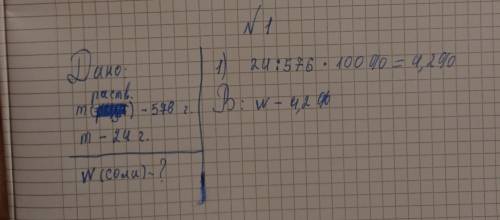 N 1
Дано:
раств.
m( ) - 578 г.
m - 24 г.
W (соли) - ?
1) 24:576 · 100% = 4,2%
В: W - 4,2%